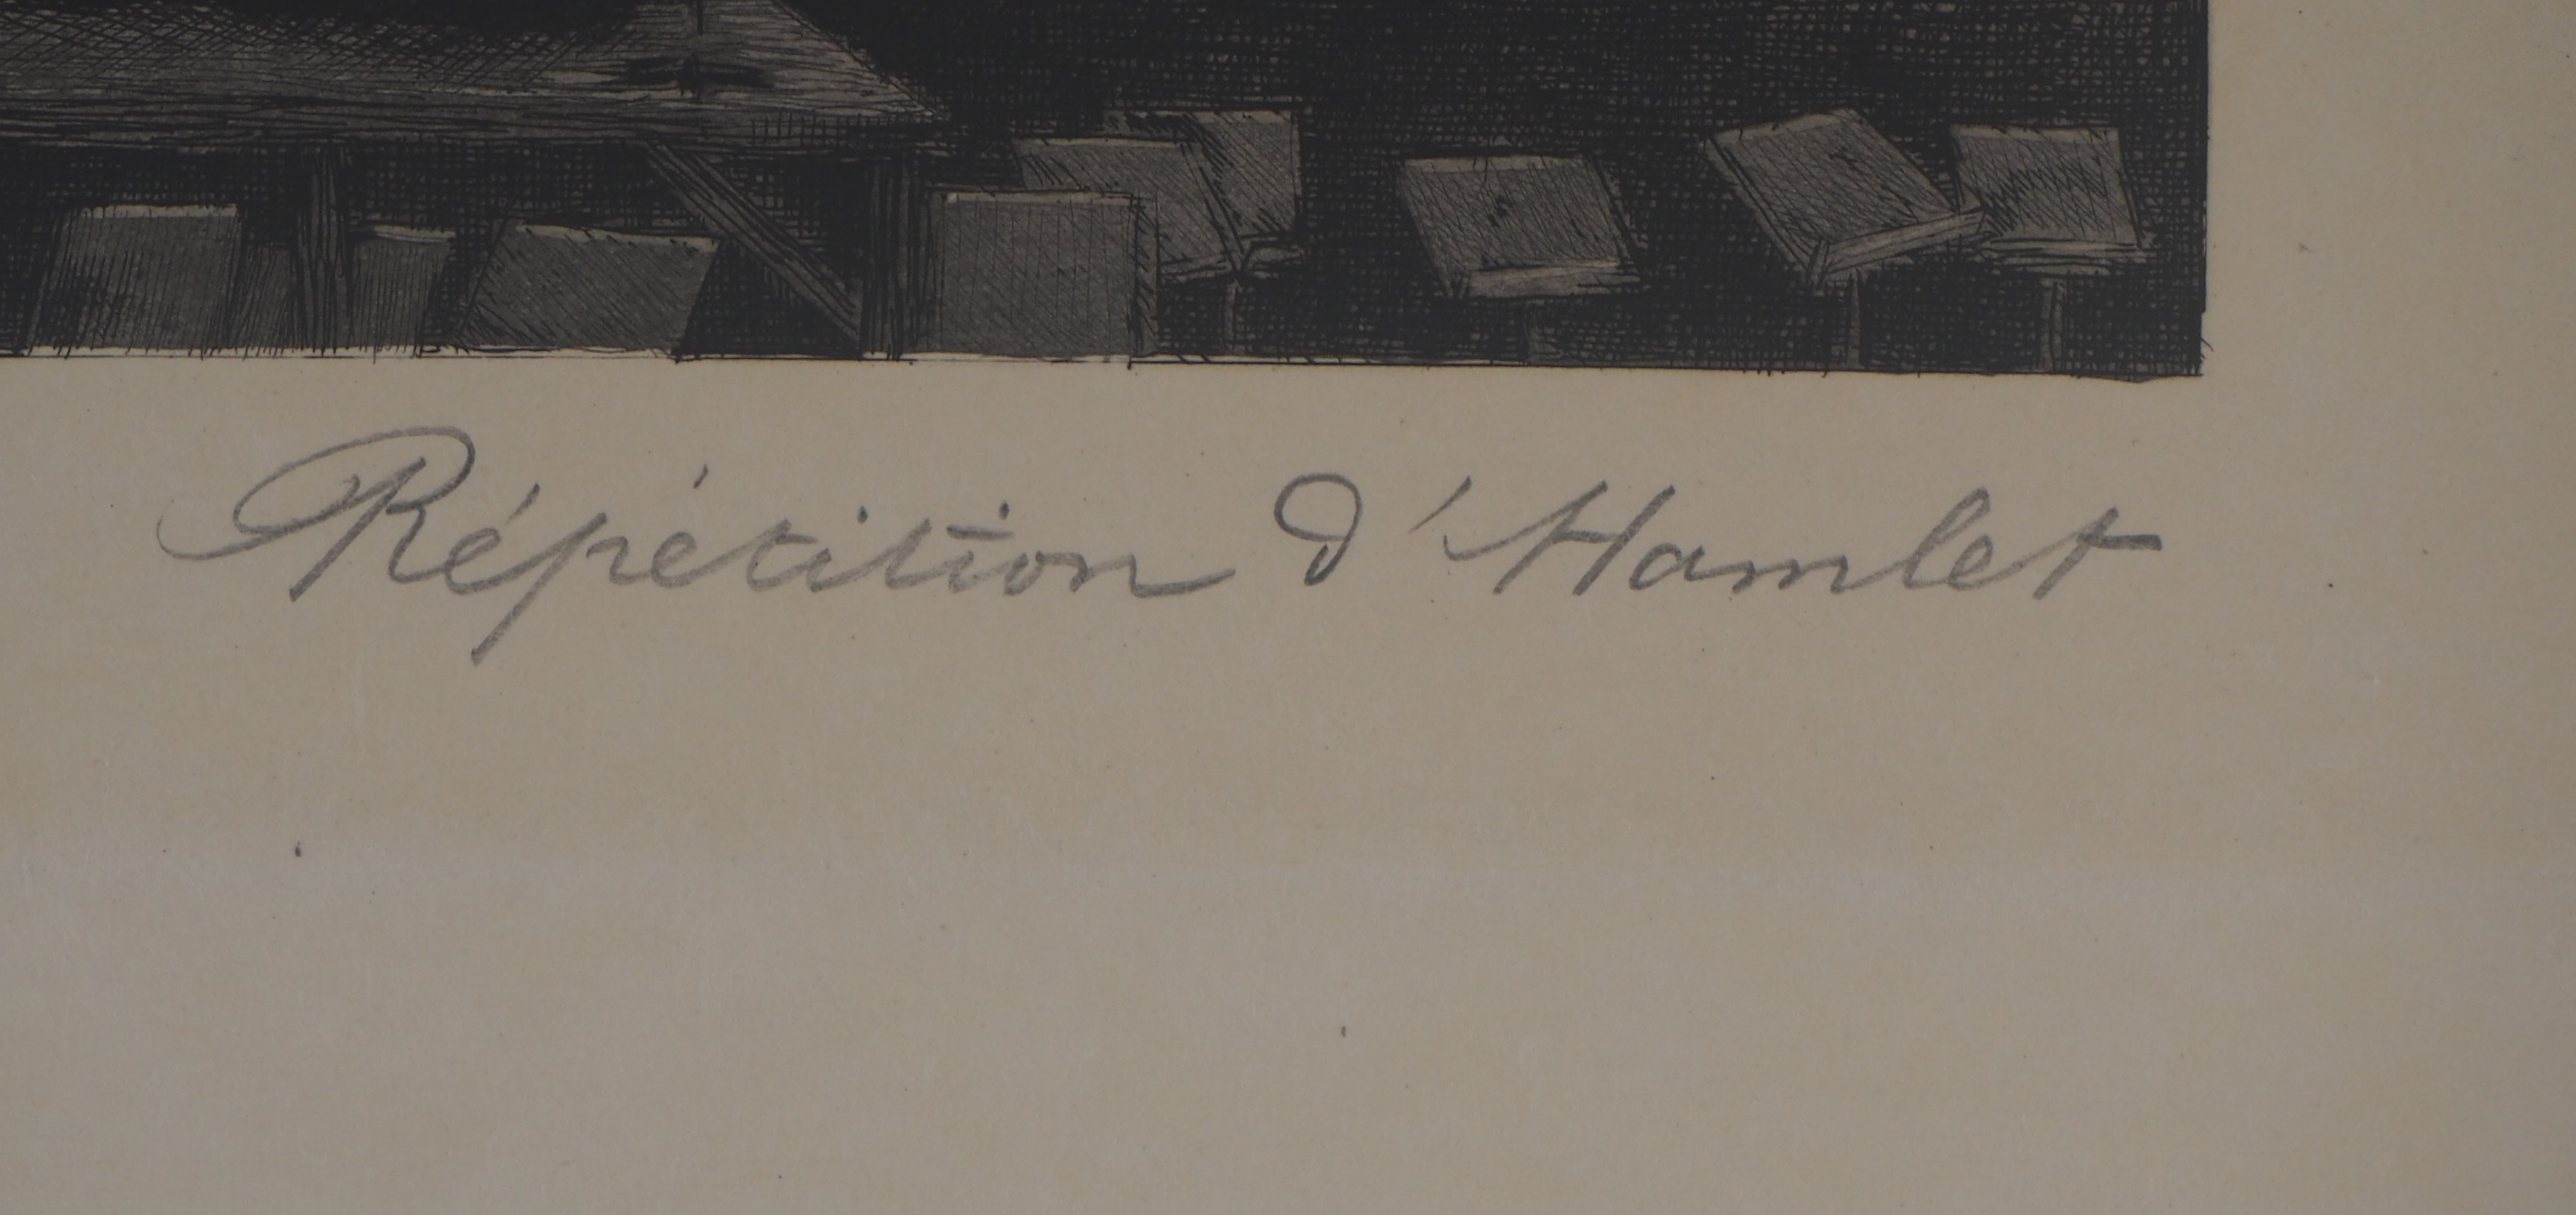 Répétition d'Hamlet